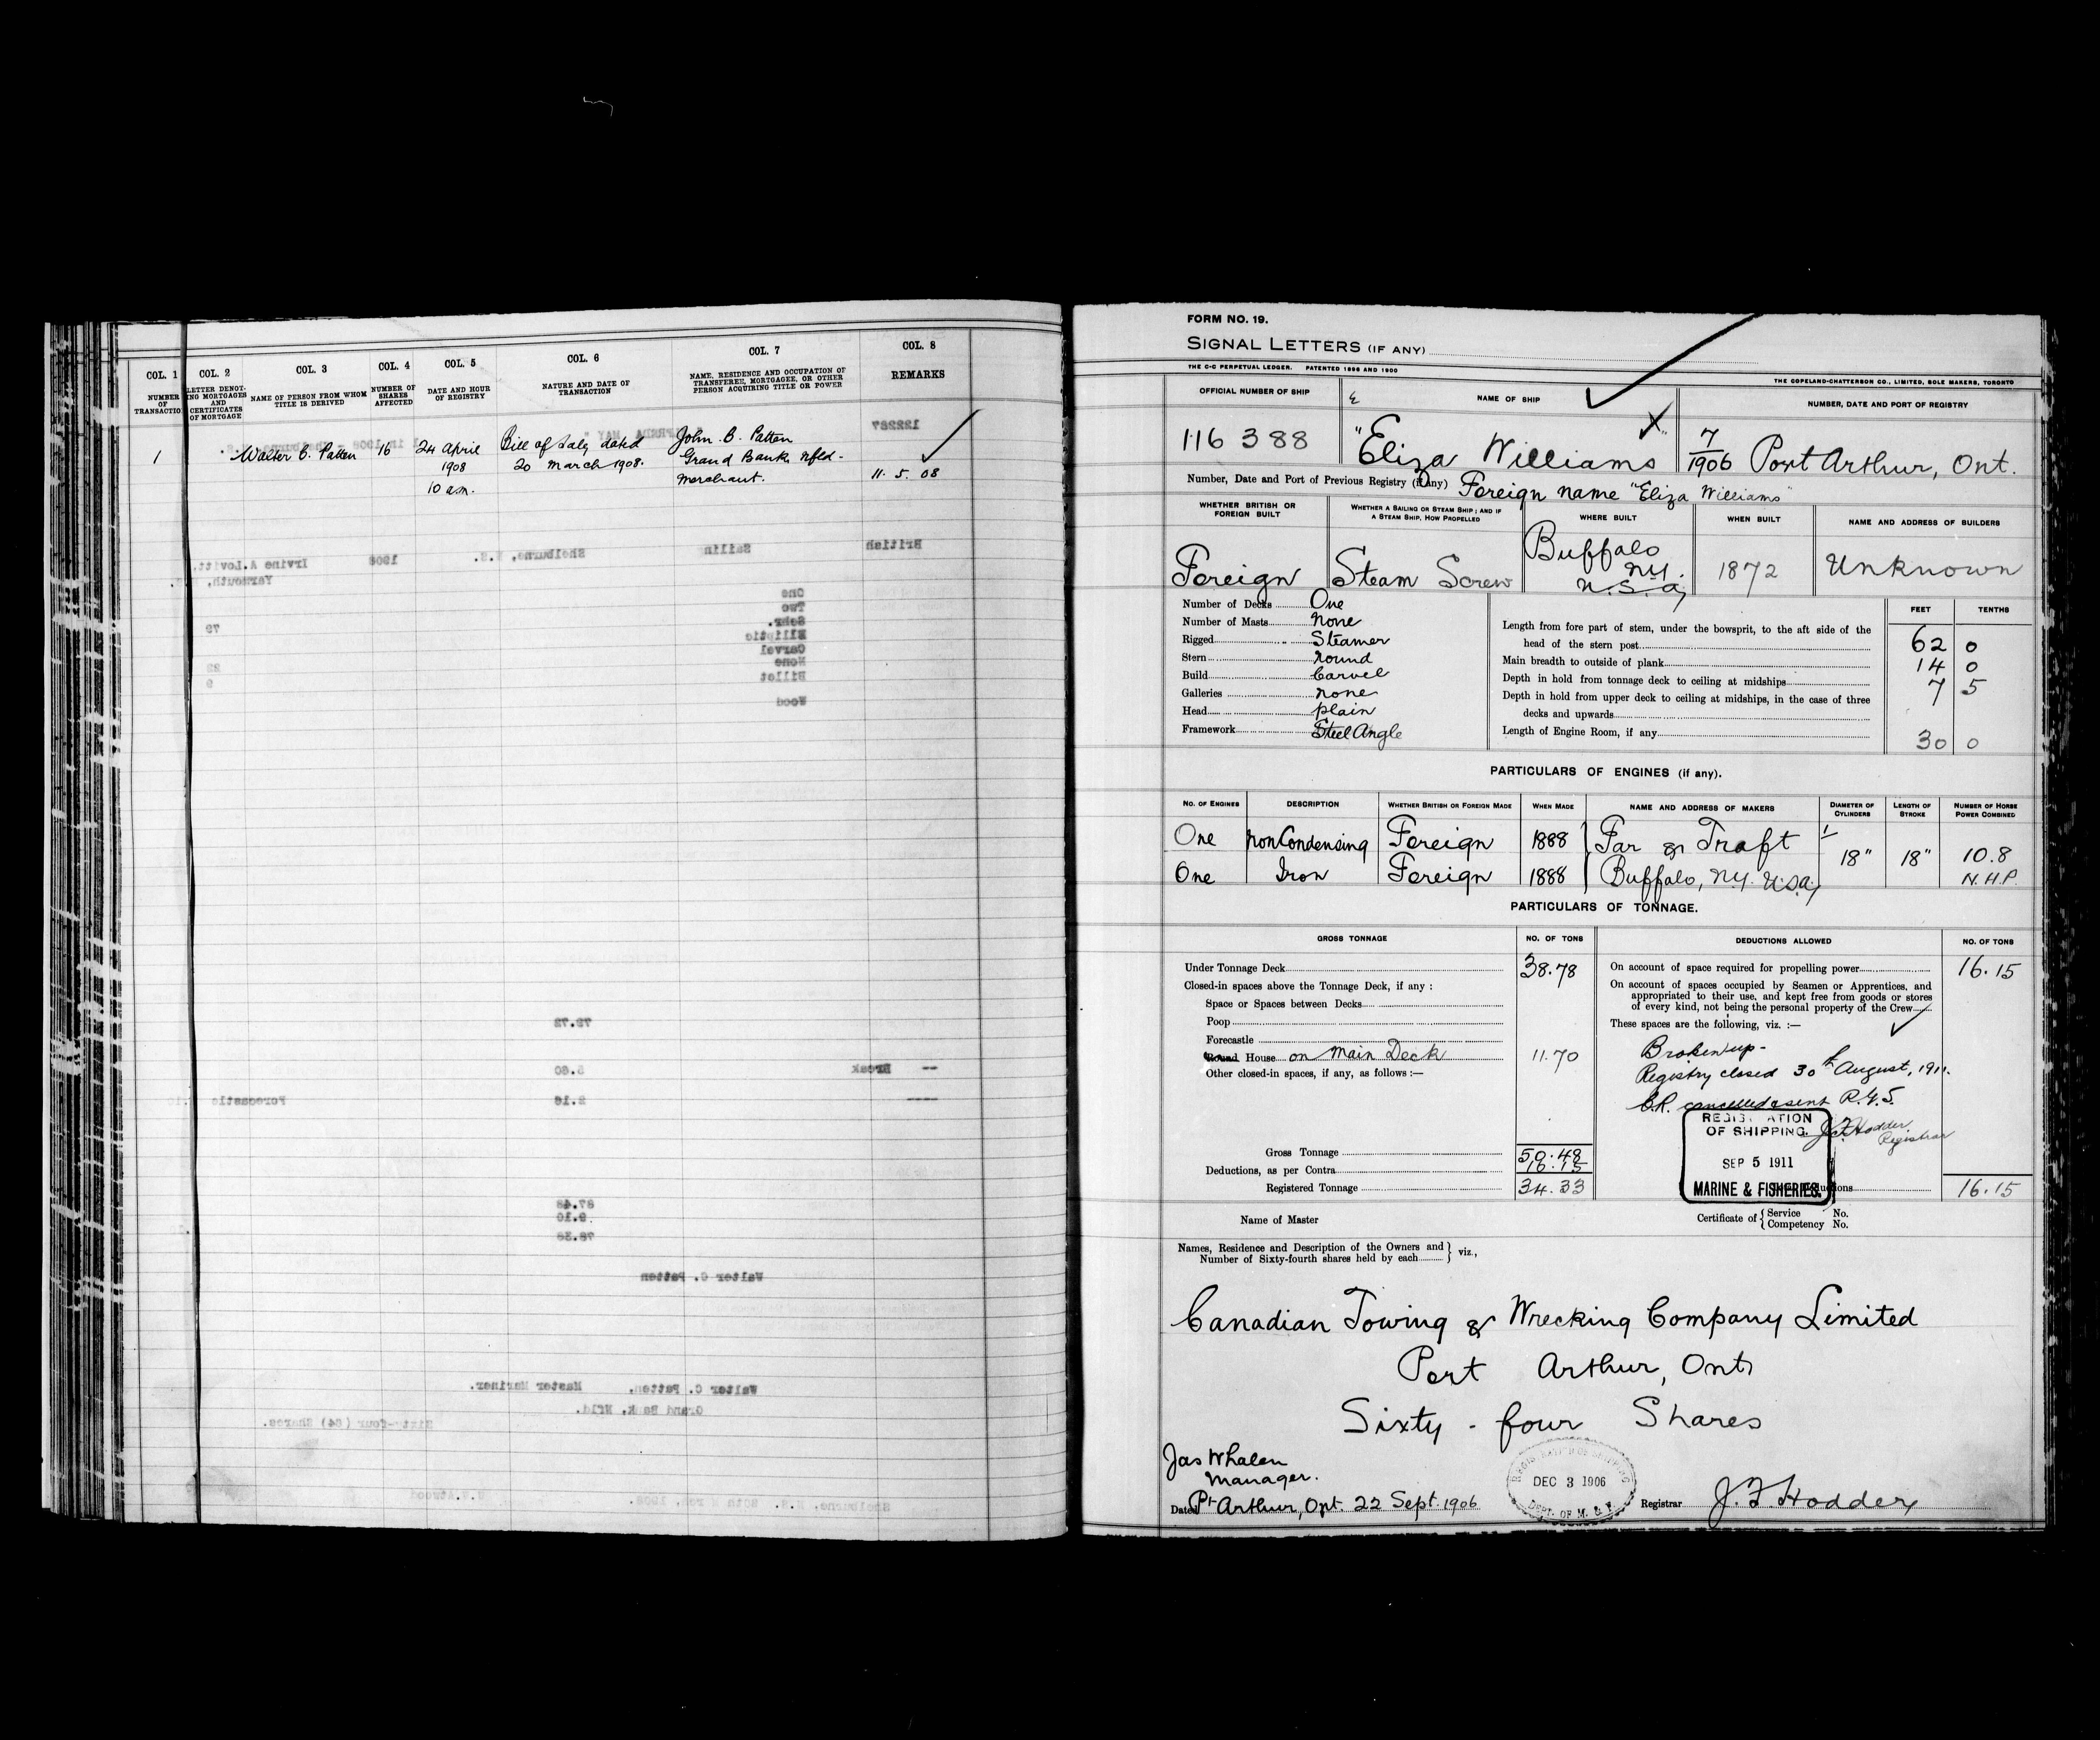 COL. 1 COL. 2 COL. 3 COL. 4 COL. 5 COL. 6 COL. 7 COL. 8
NUMBER OF TRANSACTION
LETTER DENOTING MORTGAGES AND CERTIFICATES OF MORTGAGE
NAME OF PERSON FROM WHOM TITLE IS DERIVED
NUMBER OF SHARES AFFECTED
DATE AND HOUR OF REGISTRY
NATURE AND DATE OF TRANSACTION
NAME, RESIDENCE AND OCCUPATION OF TRANSFEREE, MORTGAGEE, OR OTHER PERSON ACQUIRING TITLE OR POWER
REMARKS
1 Walter C. Patten 16 24 April Bill of Sale dated John. B. Patten
1908 20 March 1908. Grand Bank, Nfld-
10 am. Merchant. 11. 5. 08
FORM NO. 19.
SIGNAL LETTERS (IF ANY)
THE C-C PERPETUAL LEDGER. PATENTED 1896 AND 1900
THE COPELAND-CHATTERSON CO., LIMITED, SOLE MAKERS, TORONTO
OFFICIAL NUMBER OF SHIP NAME OF SHIP NUMBER, DATE AND PORT OF REGISTRY
116 388 "Eliza Williams" 7/1906 Port Arthur, Ont.
Number, Date and Port of Previous Registry (if any) Foreign name "Eliza Williams"
WHETHER BRITISH OR FOREIGN BUILT
WHETHER A SAILING OR STEAM SHIP; AND IF A STEAM SHIP, HOW PROPELLED
WHERE BUILT
WHEN BUILT
NAME AND ADDRESS OF BUILDERS
Foreign Steam Screw Buffalo N.Y. U.S.A. 1872 Unknown
Number of Decks One
Number of Masts None
Rigged Steamer
Stern round
Build Carvel
Galleries none
Head plain
Framework Steel Angle
FEET TENTHS
Length from fore part of stem, under the bowsprit, to the aft side of the
head of the stern post 62 0
Main breadth to outside of plank 14 0
Depth in hold from tonnage deck to ceiling at midships 7 5
Depth in hold from upper deck to ceiling at midships, in the case of three
decks and upwards
Length of Engine Room, if any 30 0
PARTICULARS OF ENGINES (if any).
NO. OF ENGINES DESCRIPTION WHETHER BRITISH OR FOREIGN MADE WHEN MADE NAME AND ADDRESS OF MAKERS DIAMETER OF CYLINDERS LENGTH OF STROKE NUMBER OF HORSE POWER COMBINED
One Non Condensing Foreign 1888 Far & Traft 1/18" 18" 10.8
One Iron Foreign 1888 Buffalo, N.Y. U.S.A. N.H.P.
PARTICULARS OF TONNAGE.
GROSS TONNAGE NO. OF TONS DEDUCTIONS ALLOWED NO. OF TONS
Under Tonnage Deck 38.78
Closed-in spaces above the Tonnage Deck, if any :
Space or Spaces between Decks
Poop
Forecastle
Round House on Main Deck 11.70
Other closed-in spaces, if any, as follows :—
Gross Tonnage 50.48
Deductions, as per Contra 16.15
Registered Tonnage 34.33
On account of space required for propelling power 16.15
On account of spaces occupied by Seamen or Apprentices, and
appropriated to their use, and kept free from goods or stores
of every kind, not being the personal property of the Crew
These spaces are the following, viz. :—
Broken up-
Registry closed 30th August, 1911.
C.R. cancelled & sent R.G.S.
J.F. Hodder
Registrar
REGISTRATION
OF SHIPPING.
SEP 5 1911
MARINE & FISHERIES.
16.15
Name of Master Certificate of { Service No.
Competency No.
Names, Residence and Description of the Owners and
Number of Sixty-fourth shares held by each } viz.,
Canadian Towing & Wrecking Company Limited
Port Arthur, Ont
Sixty - four Shares
Jas Whalen
Manager.
Dated Pt Arthur, Ont. 22 Sept. 1906
REGISTRATION OF SHIPPING
DEC 3 1906
DEPT. OF M. & F.
Registrar J. F. Hodder